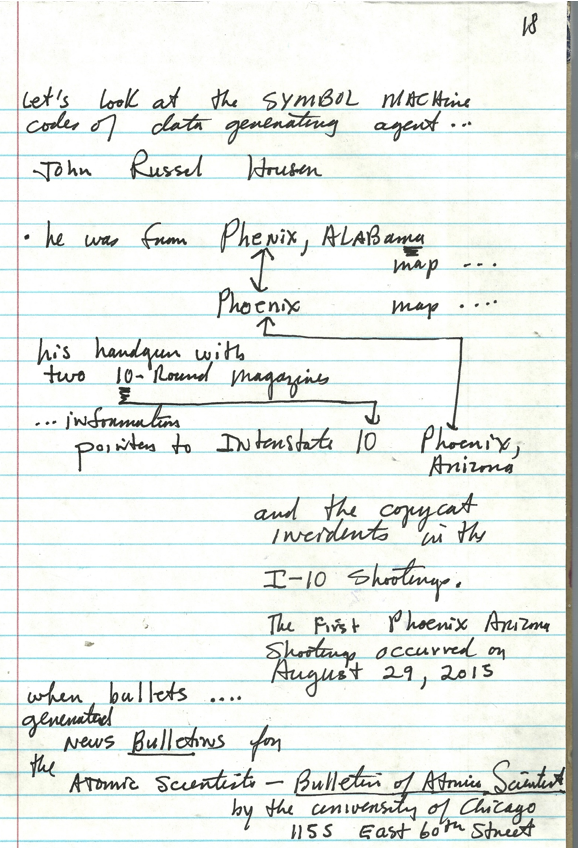 18
Let's look at the SYMBOL MACHine
codes of data generating agent...
John Russel Housen
• he was from Phenix, ALABama
map ...
Phoenix map ....
his handgun with
two 10-Round magazines
... information
pointers to Interstate 10 Phoenix,
Arizona
and the copycat
incidents in the
I-10 Shootings.
The First Phoenix Arizona
Shootings occurred on
August 29, 2015
when bullets ....
generated
News Bulletins for
the Atomic Scientists — Bulletin of Atomic Scientist
by the university of Chicago
1155 East 60th Street